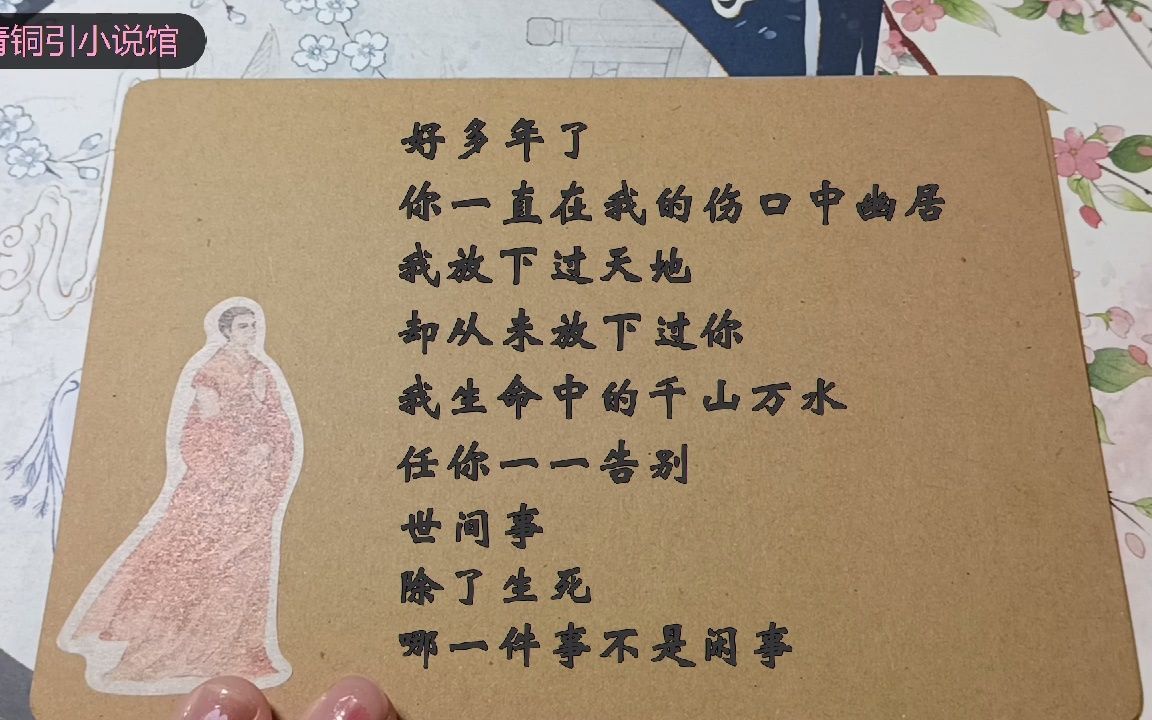 青铜引小说馆
好多年了
你一直在我的伤口中幽居
我放下过天地
却从未放下过你
我生命中的千山万水
任你一一告别
世间事
除了生死
哪一件事不是闲事